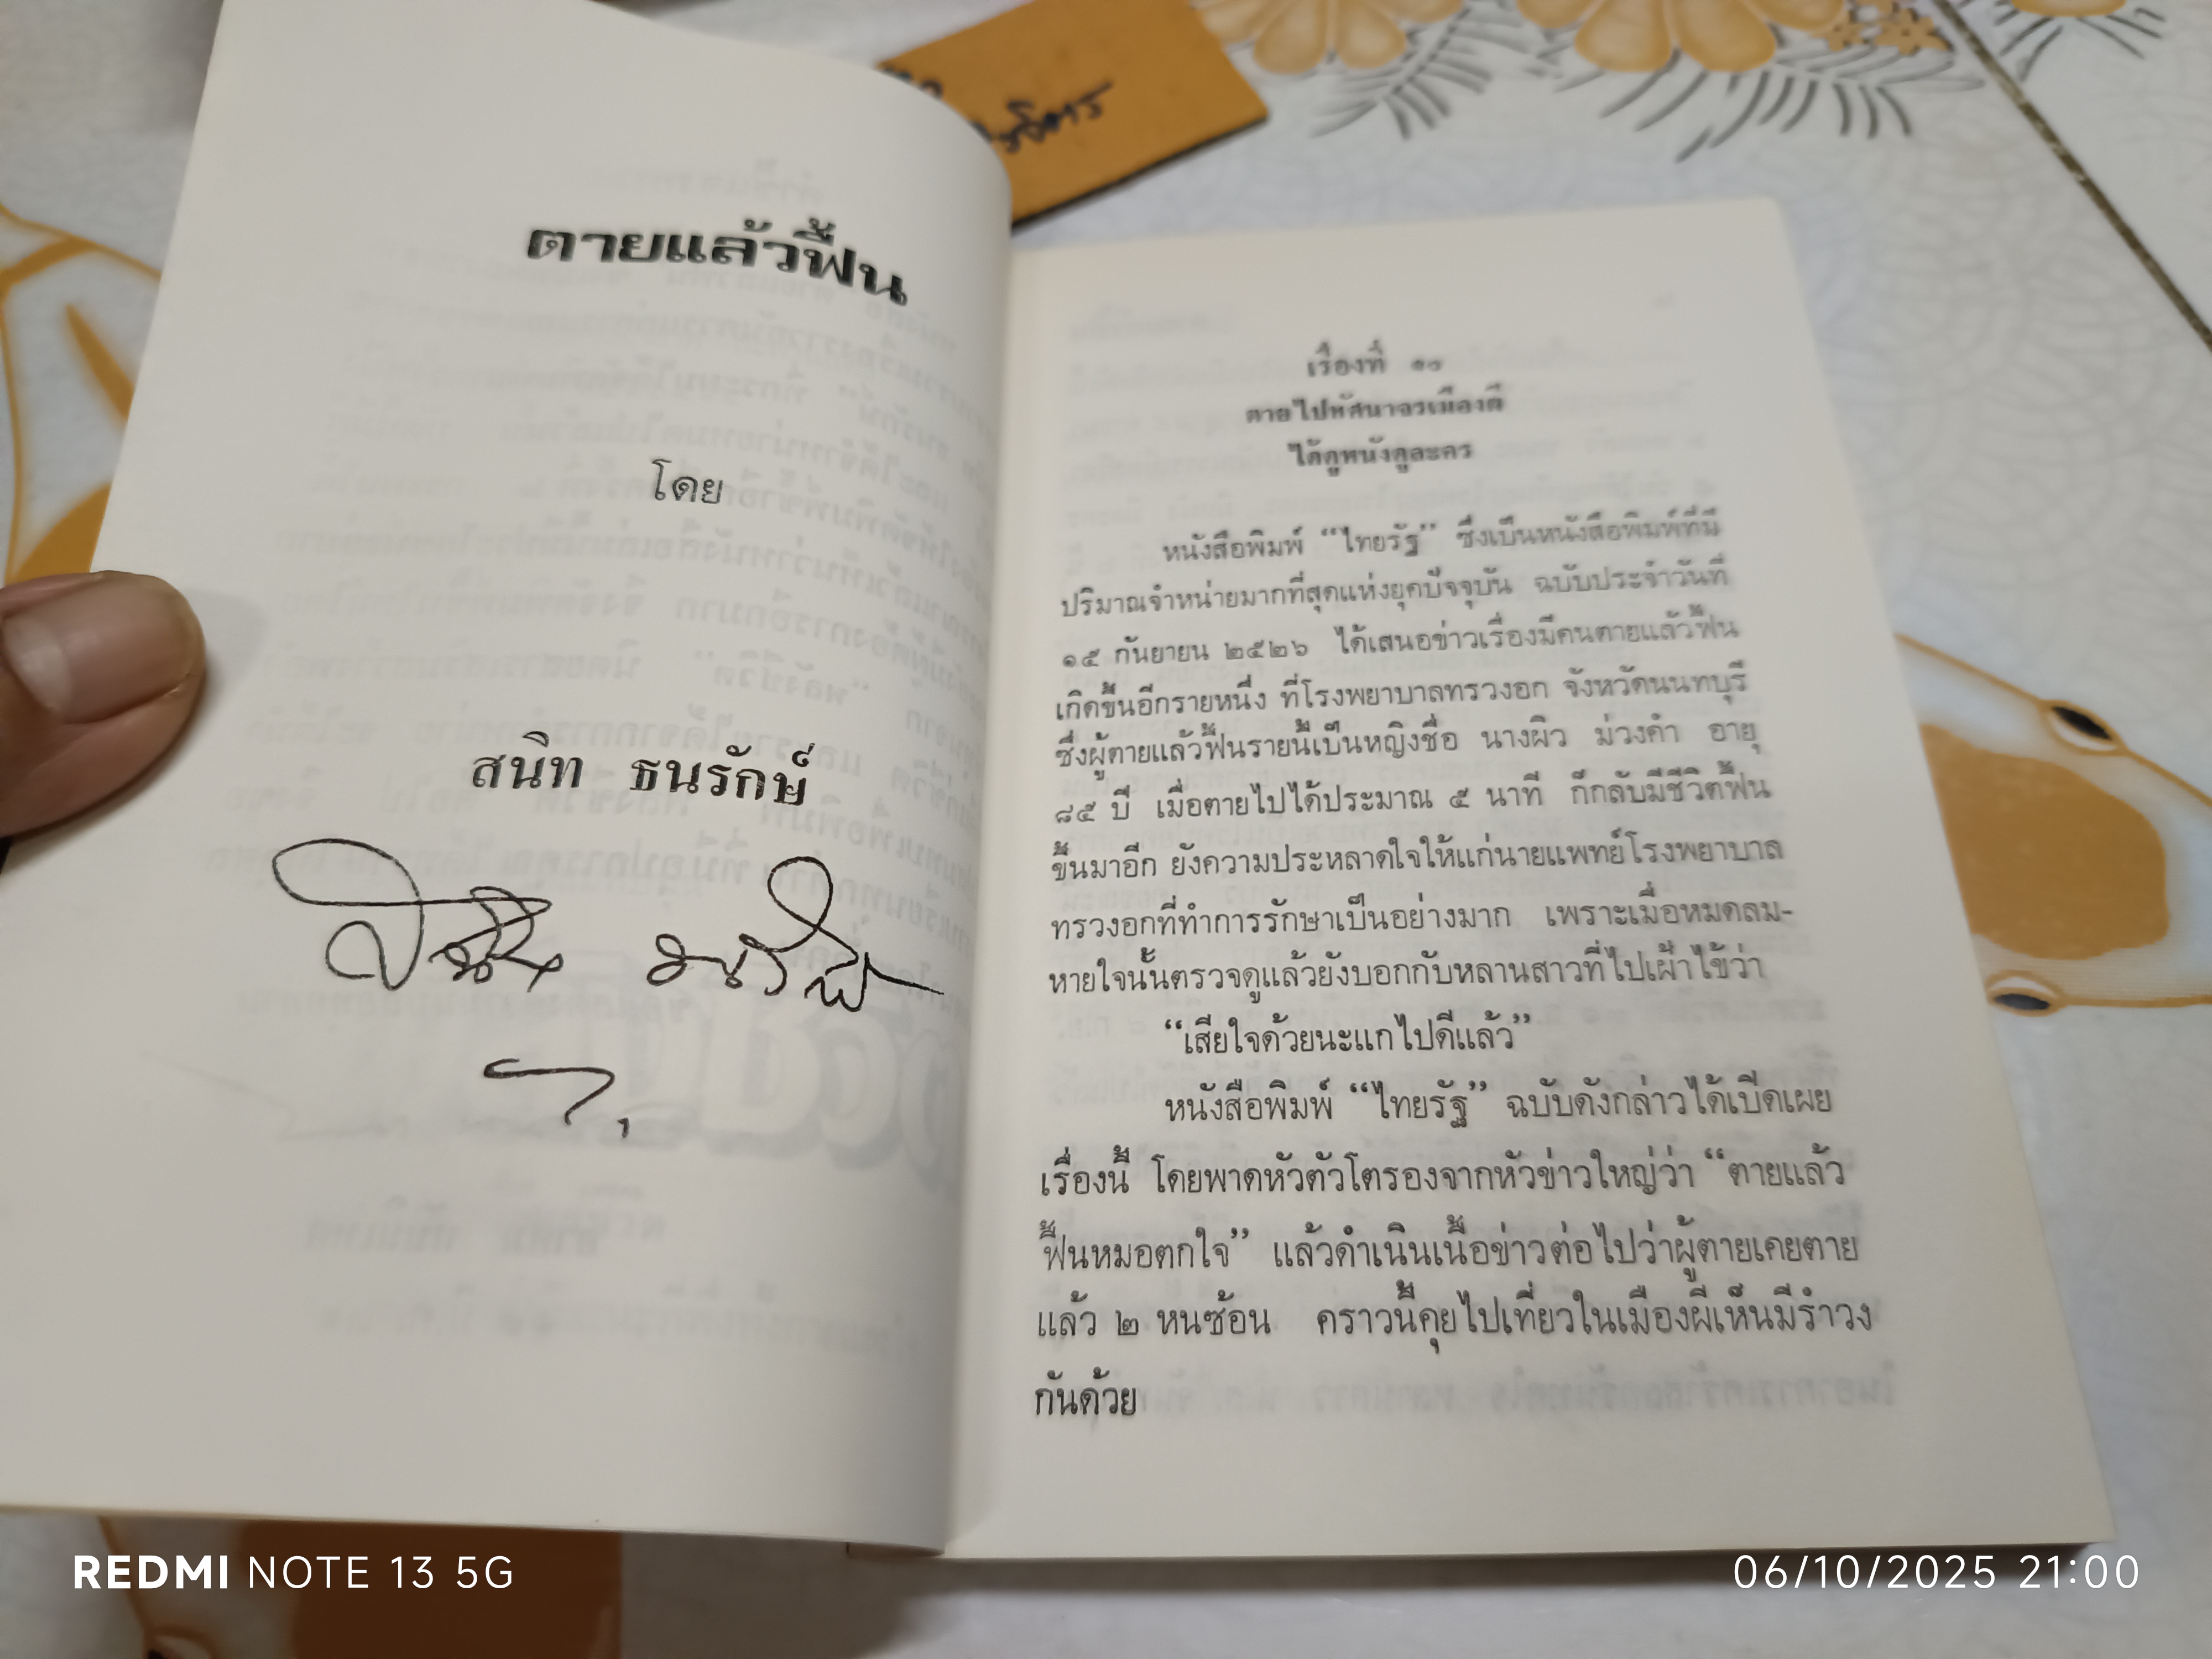 ตายแล้วฟื้น
โดย
สนิท ธนรักษ์
เรื่องที่ ๑๐
ตายไปทัศนาจรเมืองผี
ได้ดูหนังดูละคร
หนังสือพิมพ์ “ไทยรัฐ” ซึ่งเป็นหนังสือพิมพ์ที่มี
ปริมาณจำหน่ายมากที่สุดแห่งยุคปัจจุบัน ฉบับประจำวันที่
๑๕ กันยายน ๒๕๒๖ ได้เสนอข่าวเรื่องมีคนตายแล้วฟื้น
เกิดขึ้นอีกรายหนึ่ง ที่โรงพยาบาลทรวงอก จังหวัดนนทบุรี
ซึ่งผู้ตายแล้วฟื้นรายนี้เป็นหญิงชื่อ นางผิว ม่วงคำ อายุ
๘๕ ปี เมื่อตายไปได้ประมาณ ๕ นาที ก็กลับมีชีวิตฟื้น
ขึ้นมาอีก ยังความประหลาดใจให้แก่นายแพทย์โรงพยาบาล
ทรวงอกที่ทำการรักษาเป็นอย่างมาก เพราะเมื่อหมดลม-
หายใจนั้นตรวจดูแล้วยังบอกกับหลานสาวที่ไปเฝ้าไข้ว่า
“เสียใจด้วยนะแกไปดีแล้ว”
หนังสือพิมพ์ “ไทยรัฐ” ฉบับดังกล่าวได้เปิดเผย
เรื่องนี้ โดยพาดหัวตัวโตรองจากหัวข่าวใหญ่ว่า “ตายแล้ว
ฟื้นหมอตกใจ” แล้วดำเนินเนื้อข่าวต่อไปว่าผู้ตายเคยตาย
แล้ว ๒ หนซ้อน คราวนี้คุยไปเที่ยวในเมืองผีเห็นมีรำวง
กันด้วย
REDMI NOTE 13 5G
06/10/2025 21:00